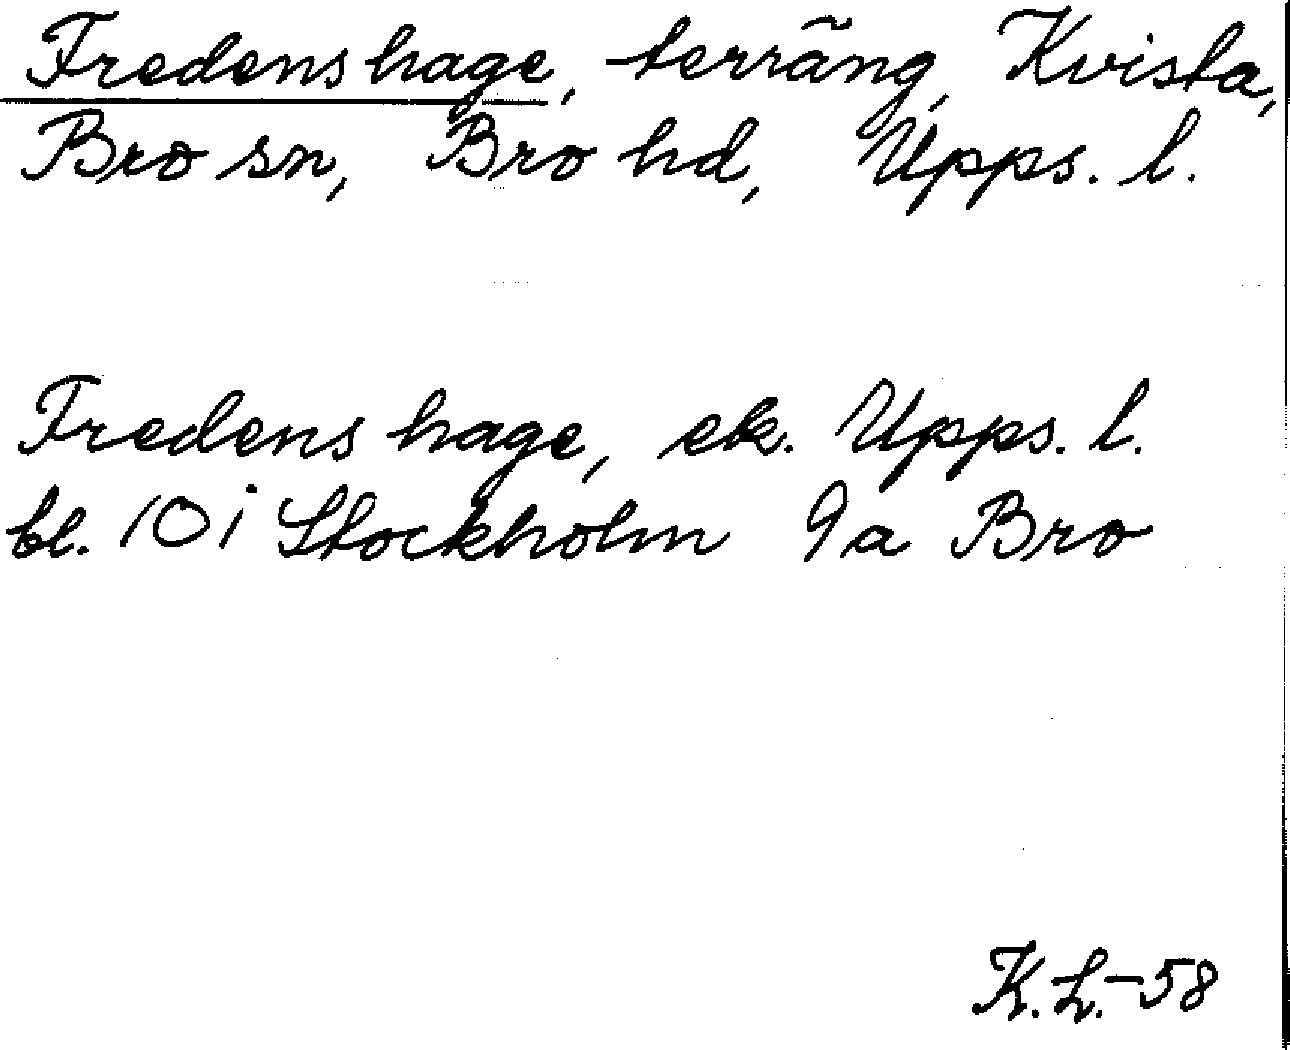 Fredenshage, terräng, Kvista,
Bro sn, Bro hd, Upps. l.
Fredenshage, ek. Upps. l.
bl. 10 i Stockholm 9a Bro
K.L.-58